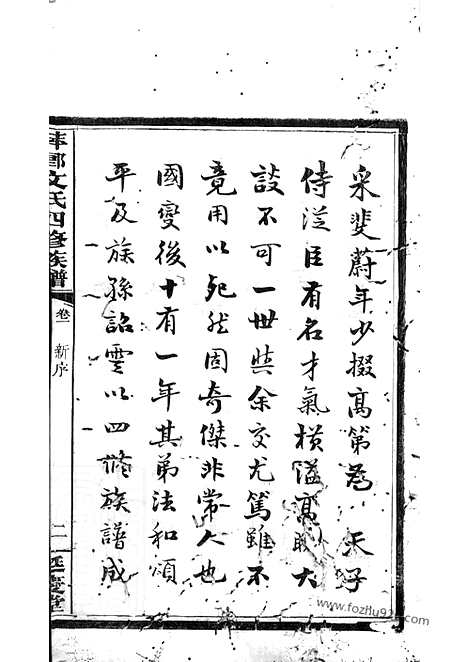 采斐蔚年少掇高第為 天子
侍從臣有名才氣橫溢高睨大
談不可一世與余交尤篤雖不
竟用以死然固奇傑非常人也
國變後十有一年其弟法和頌
平及族孫詔雲以四脩族譜成
萍鄉文氏四修族譜
卷一
新序
二